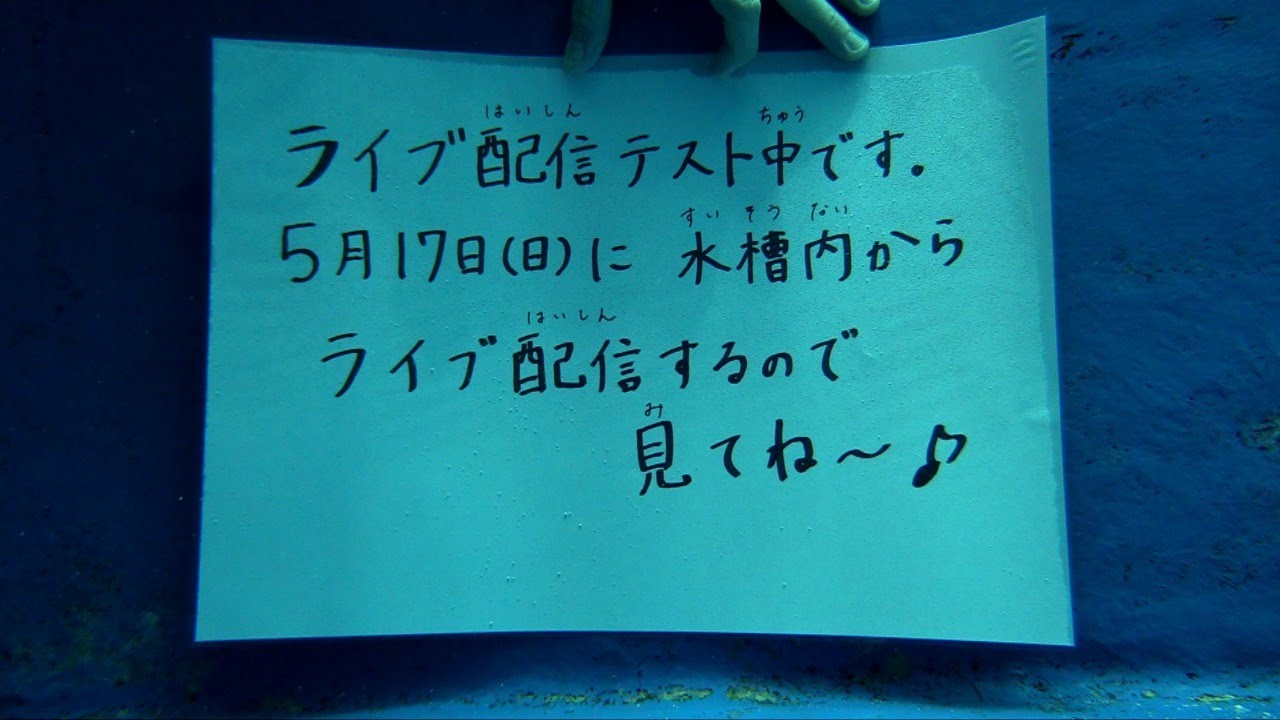 はいしん ちゅう
ライブ配信テスト中です。
すいそうない
5月17日(日)に 水槽内から
はいしん
ライブ配信するので
み
見てね〜♪